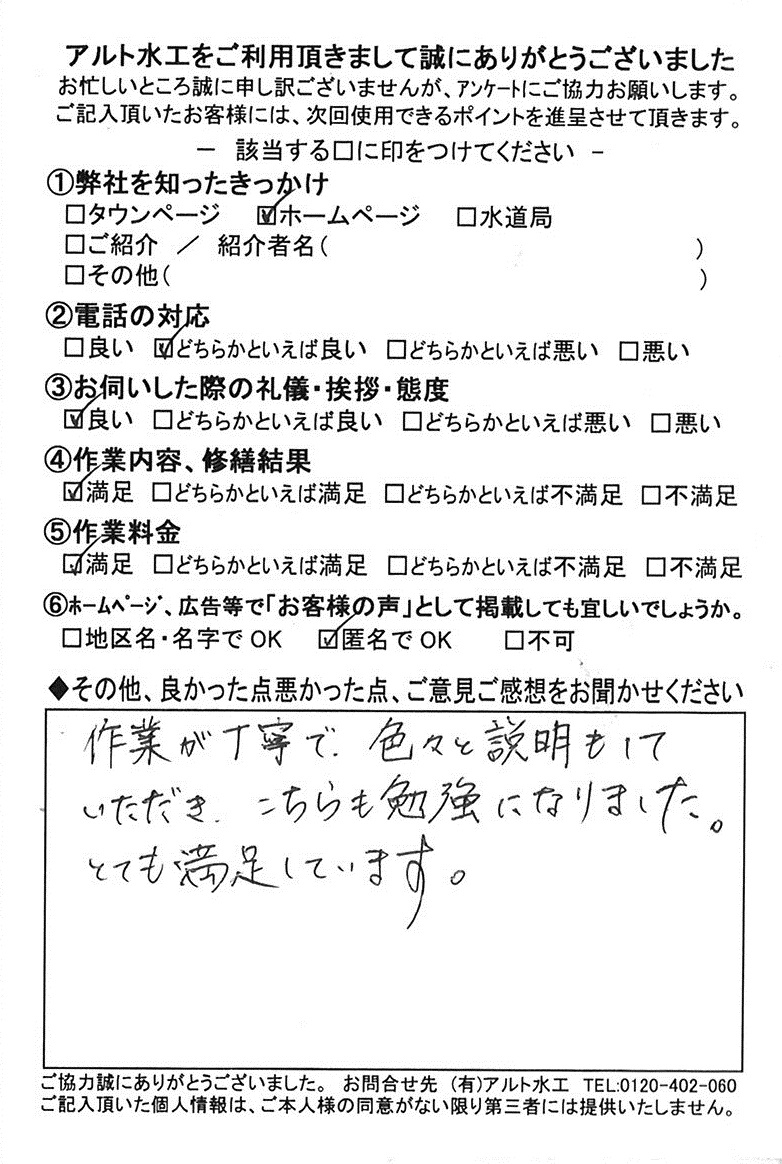 アルト水工をご利用頂きまして誠にありがとうございました
お忙しいところ誠に申し訳ございませんが、アンケートにご協力お願いします。
ご記入頂いたお客様には、次回使用できるポイントを進呈させて頂きます。
－ 該当する□に印をつけてください －
①弊社を知ったきっかけ
□タウンページ ☑ホームページ □水道局
□ご紹介 ／ 紹介者名( )
□その他( )
②電話の対応
□良い ☑どちらかといえば良い □どちらかといえば悪い □悪い
③お伺いした際の礼儀・挨拶・態度
☑良い □どちらかといえば良い □どちらかといえば悪い □悪い
④作業内容、修繕結果
☑満足 □どちらかといえば満足 □どちらかといえば不満足 □不満足
⑤作業料金
☑満足 □どちらかといえば満足 □どちらかといえば不満足 □不満足
⑥ﾎｰﾑﾍﾟｰｼﾞ、広告等で「お客様の声」として掲載しても宜しいでしょうか。
□地区名・名字でOK ☑匿名でOK □不可
◆その他、良かった点悪かった点、ご意見ご感想をお聞かせください
作業が丁寧で、色々と説明もして
いただき、こちらも勉強になりました。
とても満足しています。
ご協力誠にありがとうございました。 お問合せ先 (有)アルト水工 TEL:0120-402-060
ご記入頂いた個人情報は、ご本人様の同意がない限り第三者には提供いたしません。